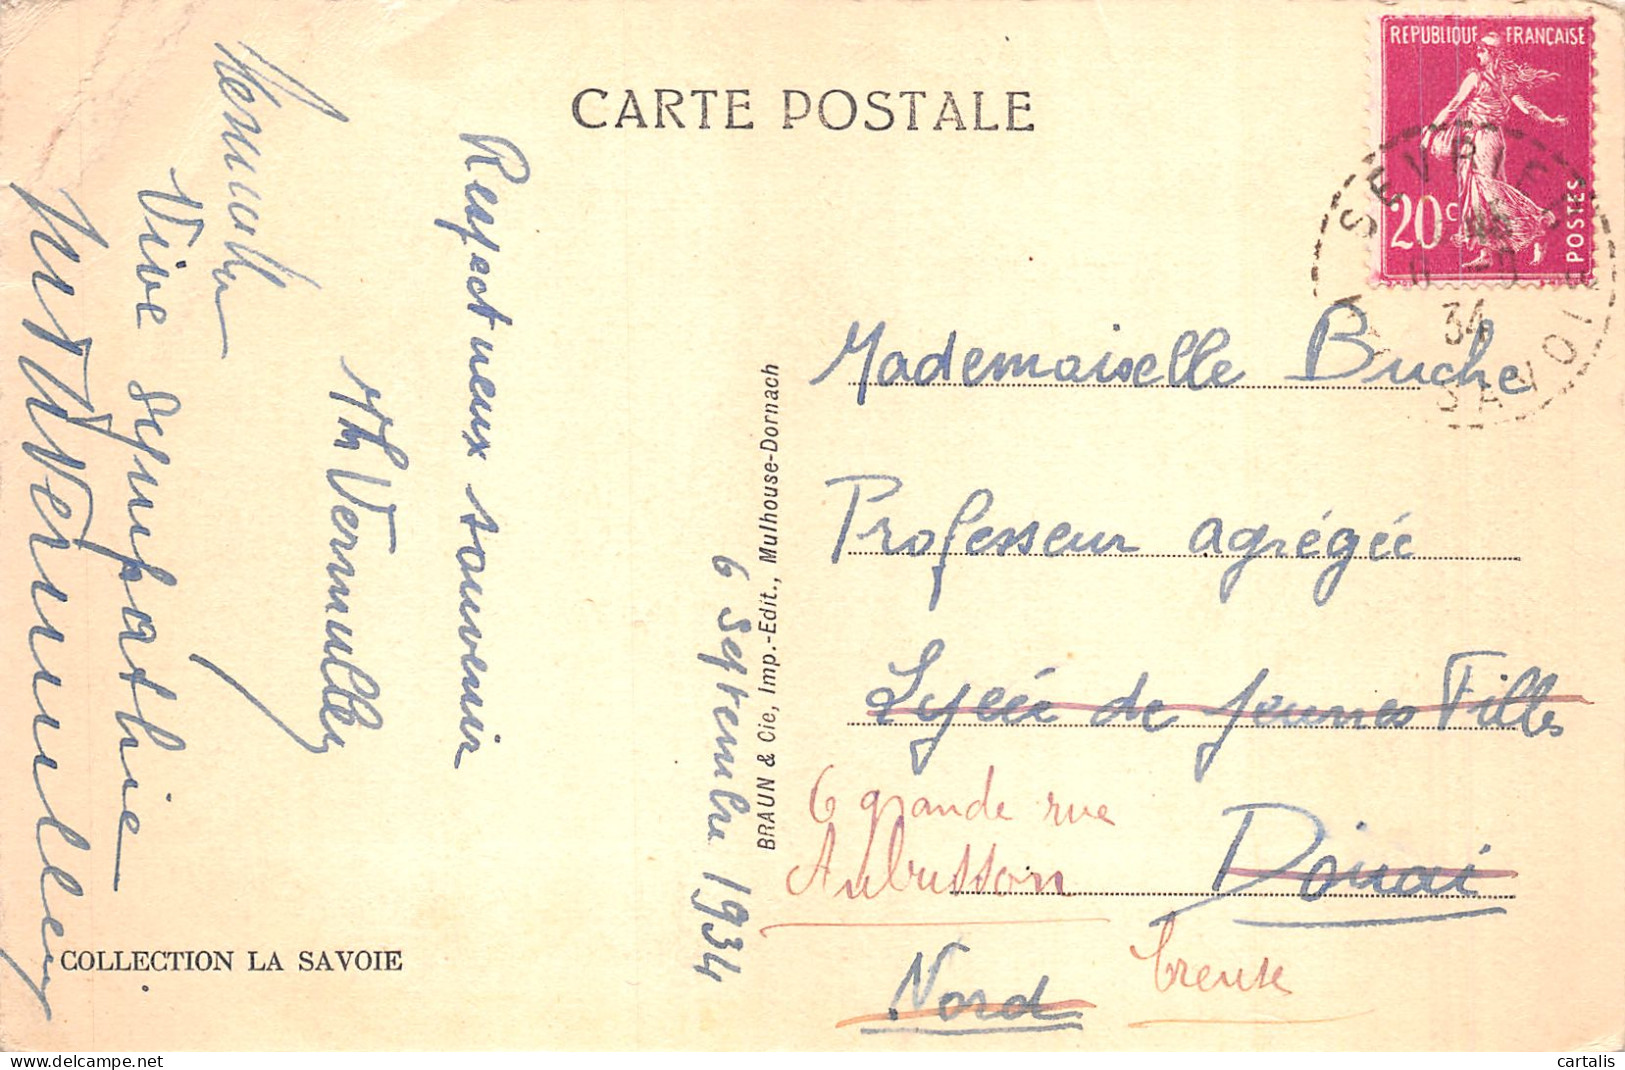 CARTE POSTALE
REPUBLIQUE FRANÇAISE
20c
POSTES
SEVRIER
34
SAVOIE
Respectueux souvenir
Vive sympathie
6 Septembre 1934
BRAUN & Cie, Imp.-Edit., Mulhouse-Dornach
Mademoiselle Buche
Professeur agrégée
Lycée de jeunes Filles
6 grande rue
Aubusson
Douai
Nord
Creuse
COLLECTION LA SAVOIE
cartalis